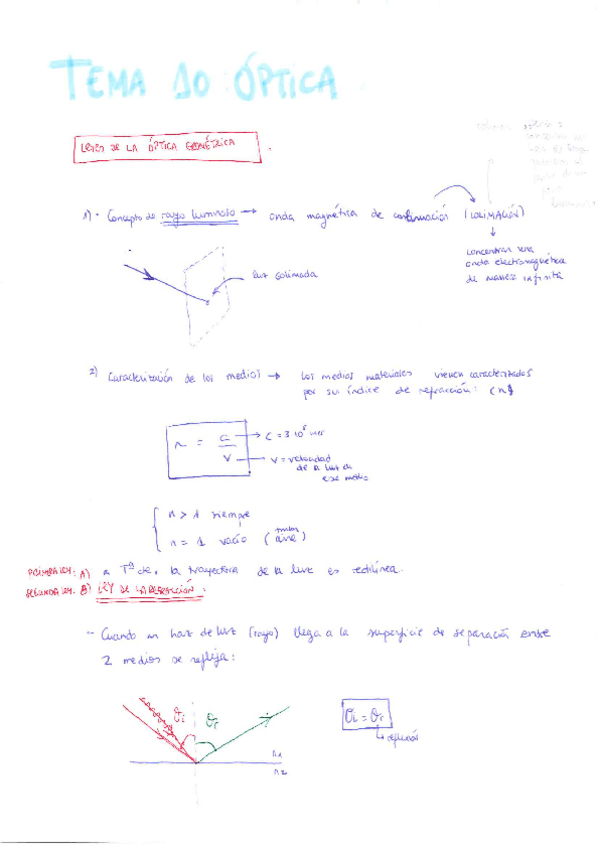 TEMA 10 ÓPTICA
LEYES DE LA ÓPTICA GEOMÉTRICA
1)- Concepto de rayo luminoso → onda magnética de continuación (COLIMACIÓN)
concentrar una
onda electromagnética
de manera infinita
luz colimada
2) Caracterización de los medios → los medios materiales vienen caracterizados
por su índice de refracción: (n)
n = c/v
c = 3 10
v = velocidad
de la luz en
ese medio
n > 1 siempre
n = 1 vacío (aire)
PRIMERA LEY: A) a Tª cte, la trayectoria de la luz es rectilínea.
SEGUNDA LEY: B) LEY DE LA REFLEXIÓN:
- Cuando un haz de luz (rayo) llega a la superficie de separación entre
2 medios se refleja:
θi θr
n1
n2
θi = θr
reflexión